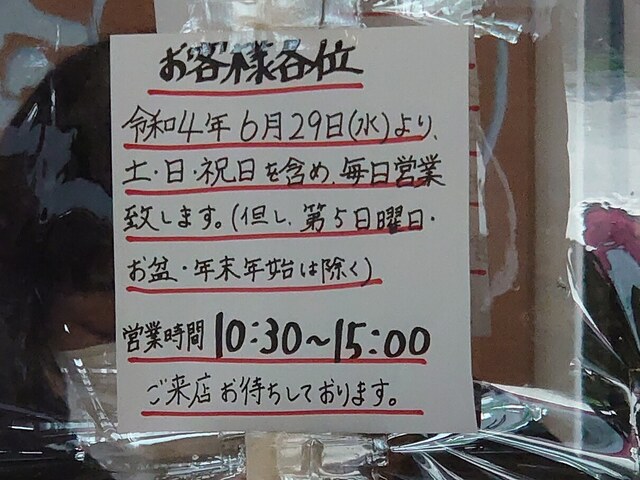 お客様各位
令和4年6月29日(水)より、
土・日・祝日を含め、毎日営業
致します。(但し、第5日曜日・
お盆・年末年始は除く)
営業時間 10:30~15:00
ご来店お待ちしております。